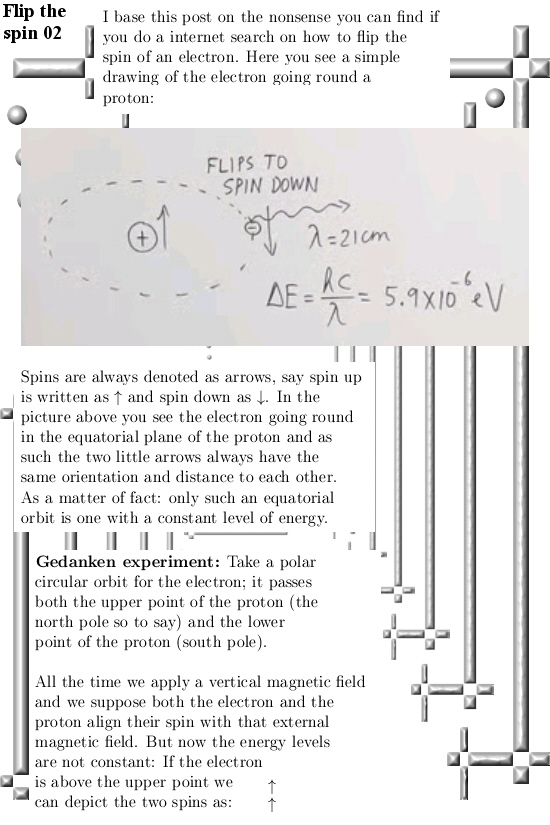 Flip the
spin 02
I base this post on the nonsense you can find if
you do a internet search on how to flip the
spin of an electron. Here you see a simple
drawing of the electron going round a
proton:
FLIPS TO
SPIN DOWN
λ=21cm
ΔE = hc/λ = 5.9x10⁻⁶eV
Spins are always denoted as arrows, say spin up
is written as ↑ and spin down as ↓. In the
picture above you see the electron going round
in the equatorial plane of the proton and as
such the two little arrows always have the
same orientation and distance to each other.
As a matter of fact: only such an equatorial
orbit is one with a constant level of energy.
Gedanken experiment: Take a polar
circular orbit for the electron; it passes
both the upper point of the proton (the
north pole so to say) and the lower
point of the proton (south pole).
All the time we apply a vertical magnetic field
and we suppose both the electron and the
proton align their spin with that external
magnetic field. But now the energy levels
are not constant: If the electron
is above the upper point we ↑
can depict the two spins as: ↑